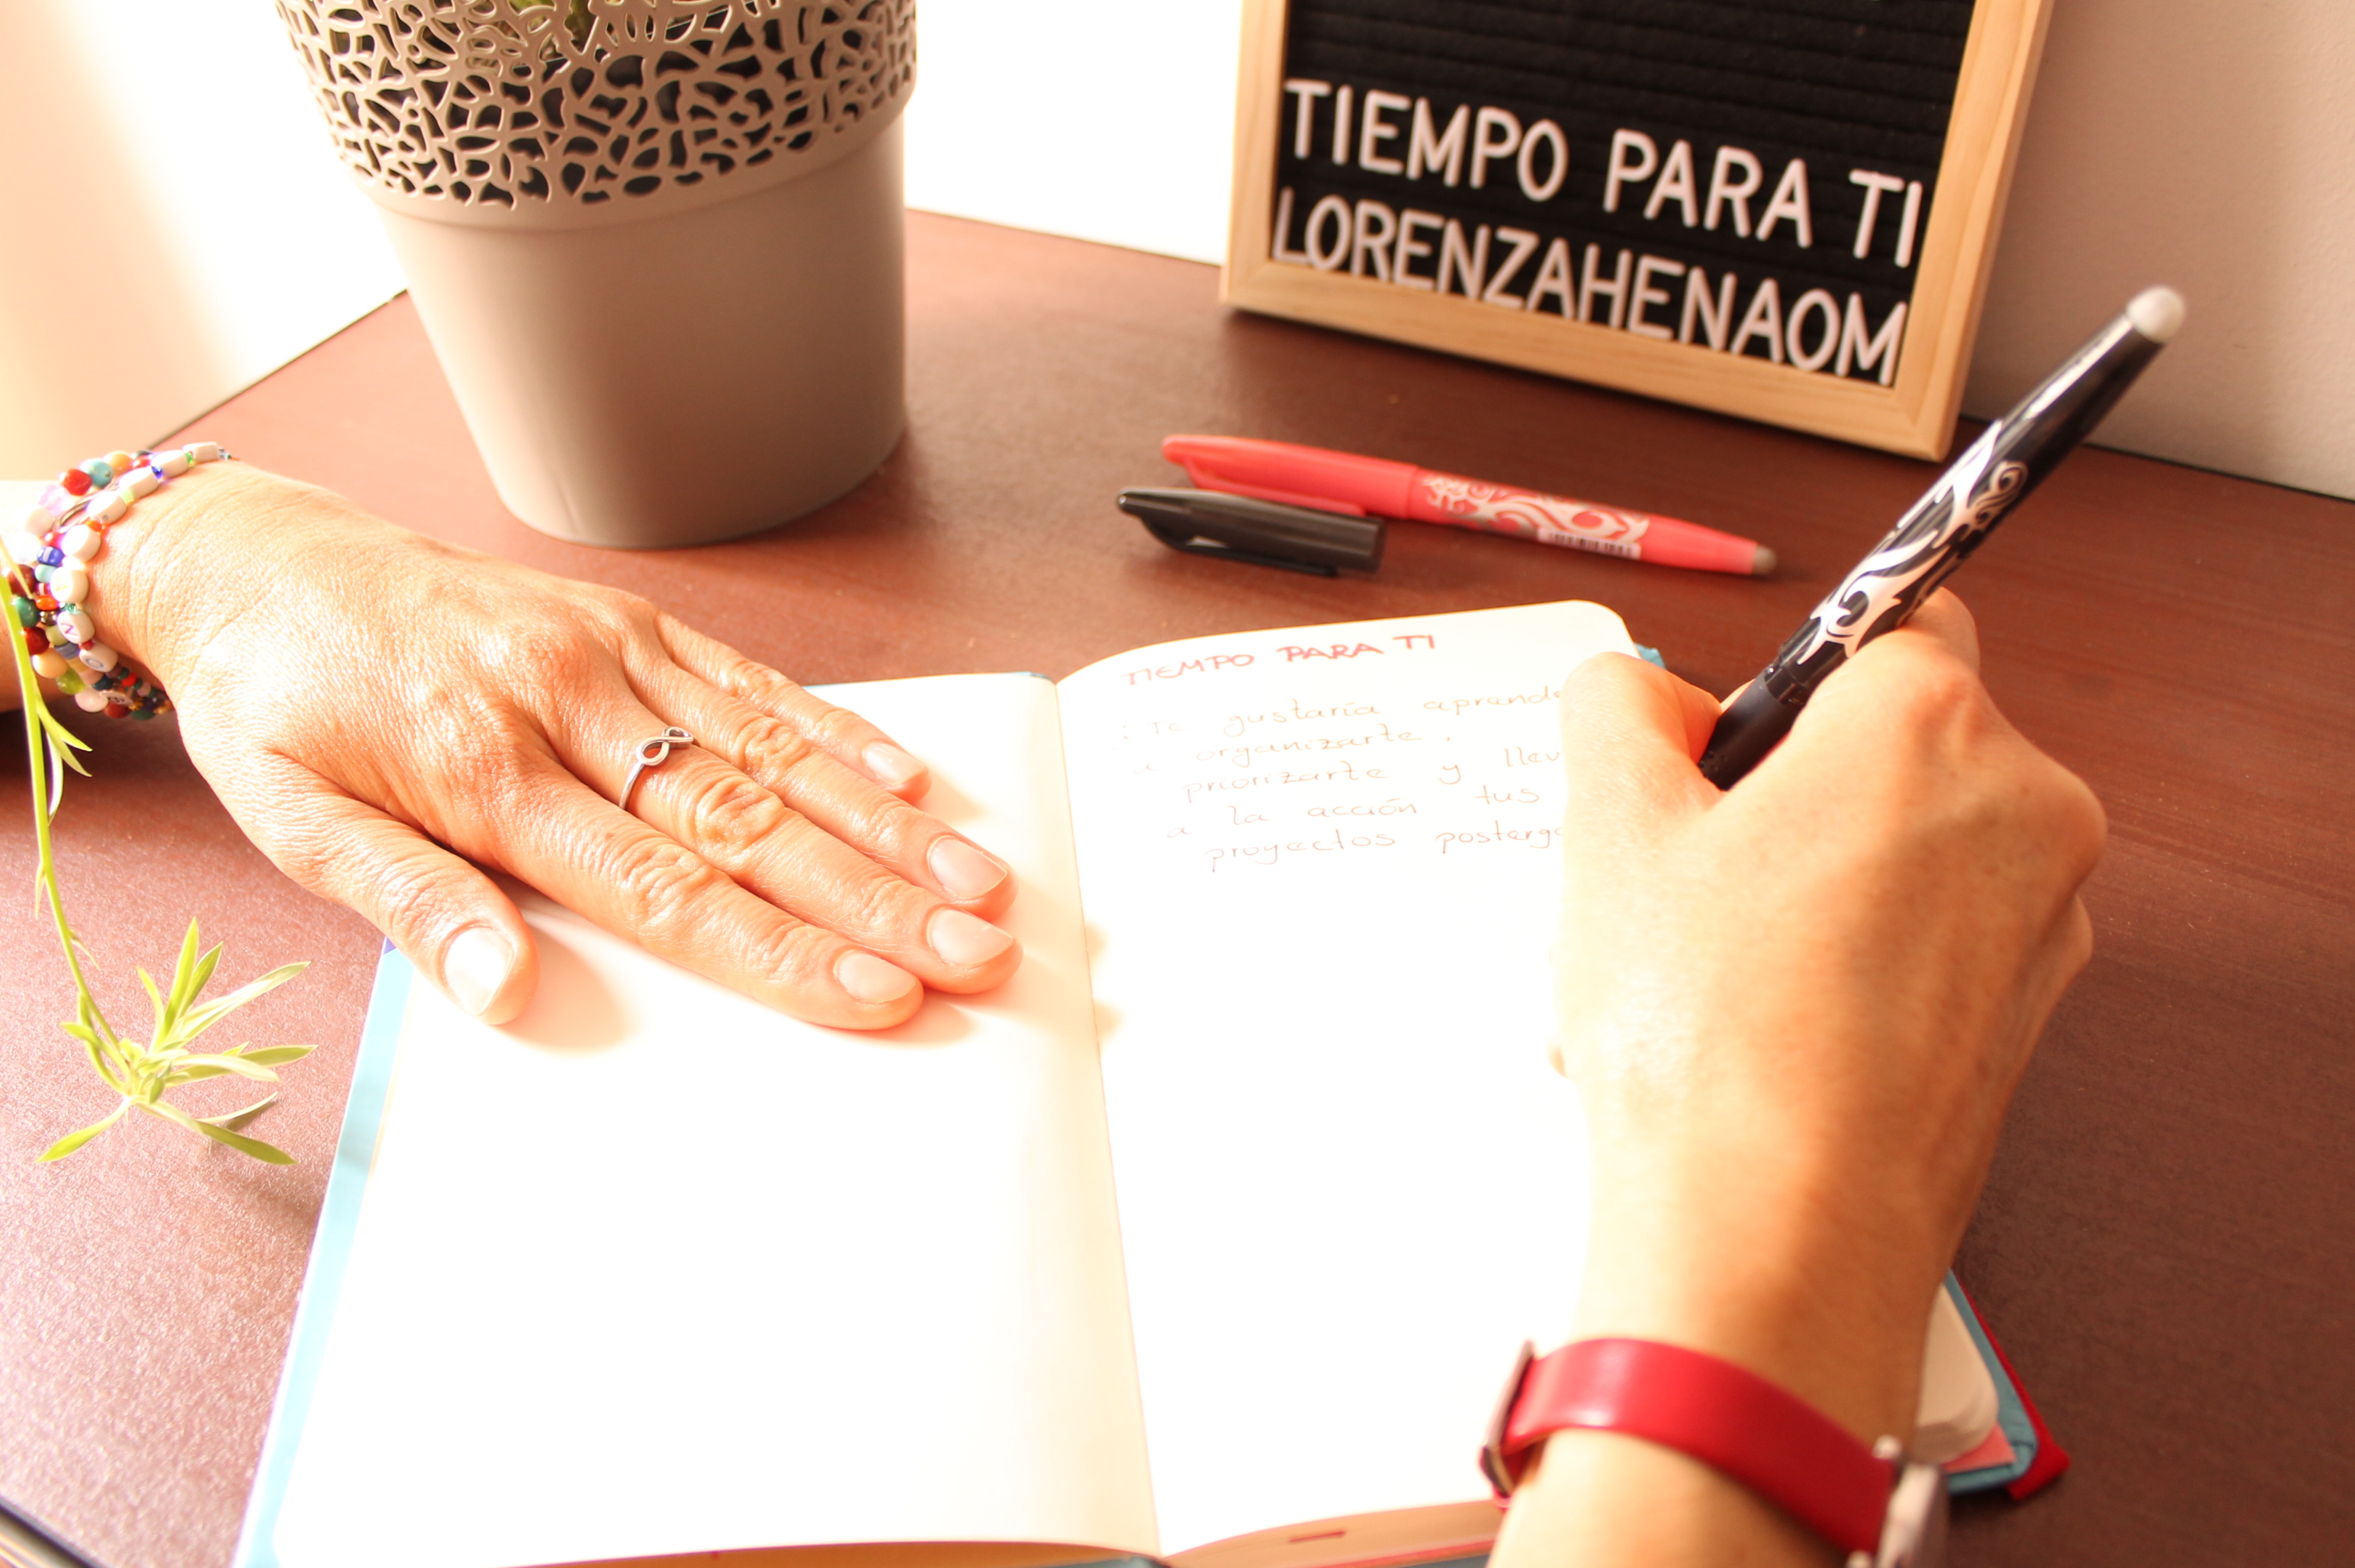 TIEMPO PARA TI
LORENZAHENAOM
TIEMPO PARA TI
¿Te gustaría aprende
a organizarte,
priorizarte y llev
a la acción tus
proyectos posterga